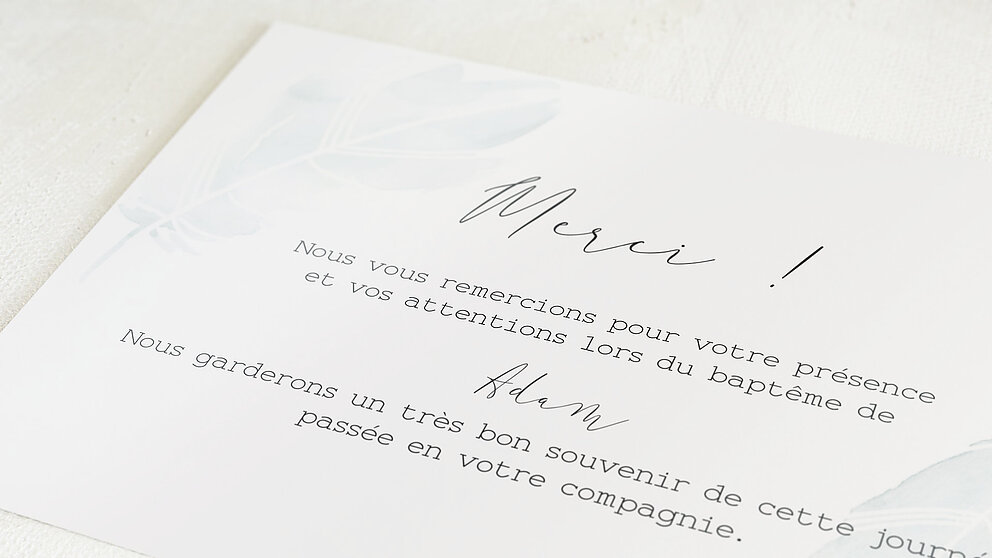 Merci !
Nous vous remercions pour votre présence
et vos attentions lors du baptême de
Adam
Nous garderons un très bon souvenir de cette journé
passée en votre compagnie.